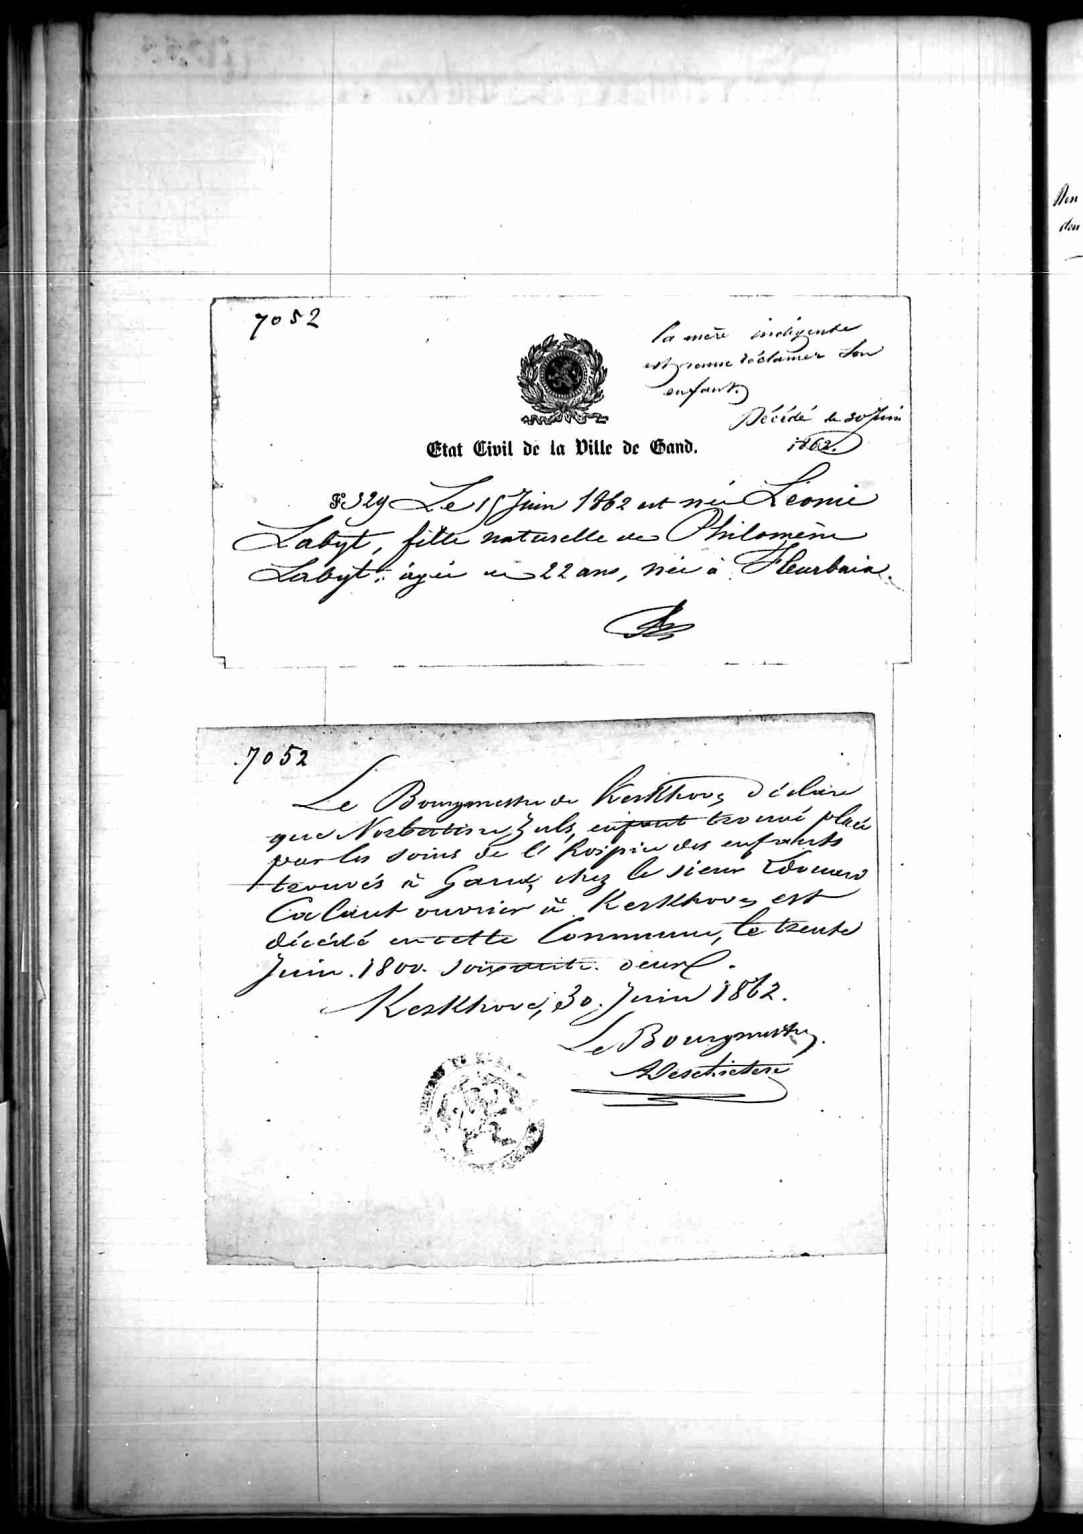 7052
la mère indigente
est venue réclamer son
enfant.
Décédé le 30 Juin
1862.
Etat Civil de la Ville de Gand.
Le 15 Juin 1862 est née Léonie
Labyt, fille naturelle de Philomène
Labyt, âgée de 22 ans, née à Fleurbaix.
7052
Le Bourgmestre de Kerkhove déclare
que Norbertine Zuls, enfant trouvé placé
par les soins de l'hospice des enfants
trouvés à Gand, chez le sieur Edouard
Calant ouvrier à Kerkhove, est
décédé en cette Commune, le trente
Juin 1800 soixante deux.
Kerkhove, 30 Juin 1862.
Le Bourgmestre,